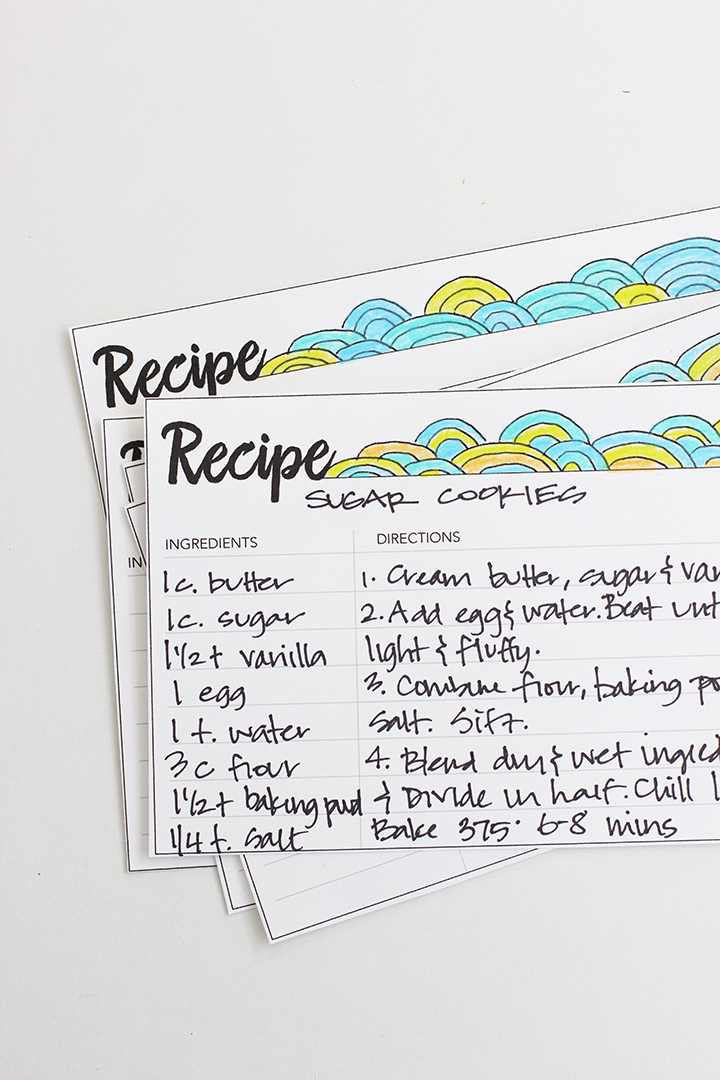 Recipe
Recipe
SUGAR COOKIES
INGREDIENTS
1c. butter
1c. sugar
1 1/2 t vanilla
1 egg
1 t. water
3 c flour
1 1/2 t baking pwd
1/4 t. salt
DIRECTIONS
1. Cream butter, sugar &
2. Add egg & water. Beat
light & fluffy.
3. Combine flour, baking
salt. Sift.
4. Blend dry & wet
& Divide in half. Chill
Bake 375° 6-8 mins
IN